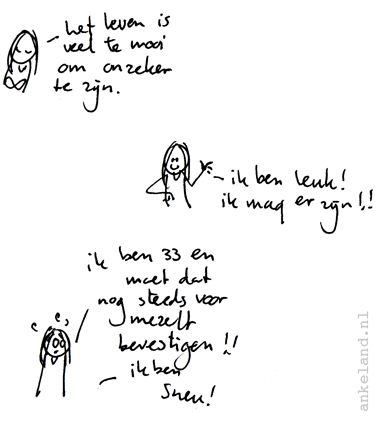 het leven is
veel te mooi
om onzeker
te zijn.
ik ben leuk!
ik mag er zijn!!
ik ben 33 en
moet dat
nog steeds voor
mezelf
bevestigen!!
ik ben
sneu!
ankeland.nl